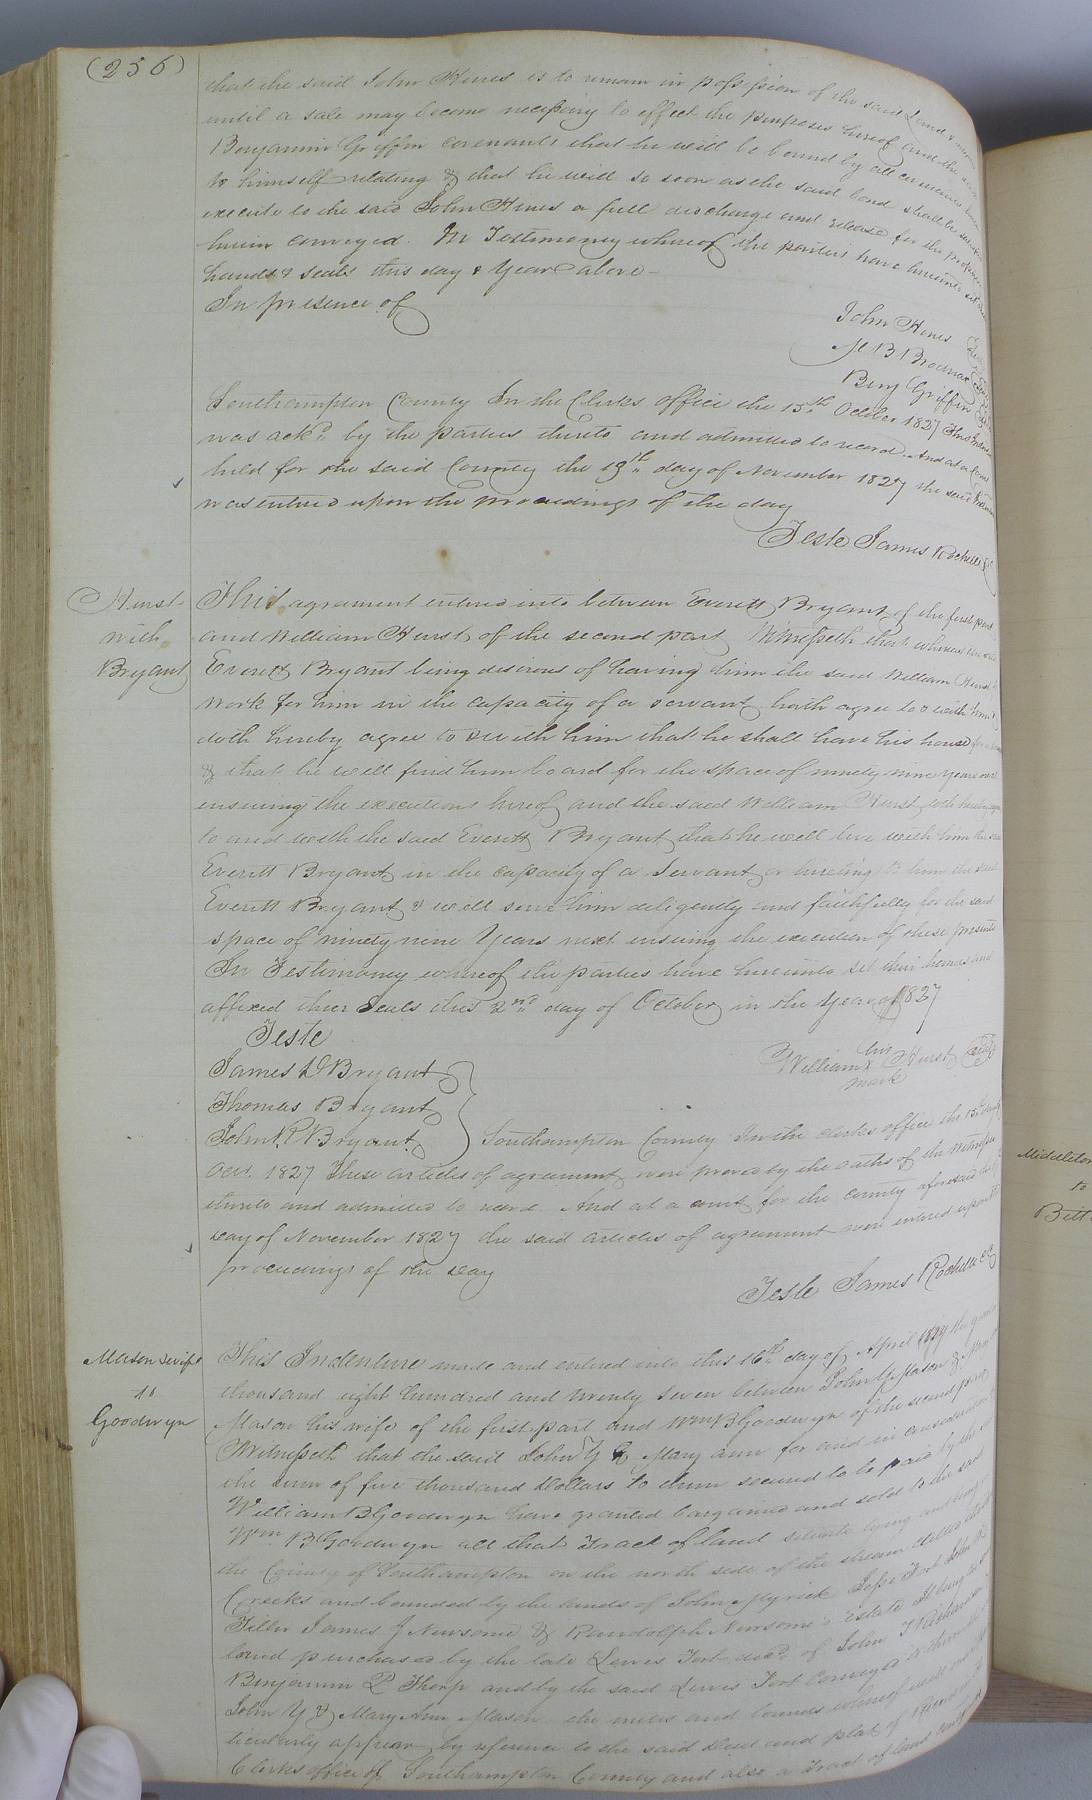 (256)
that the said John Hines is to remain in possession of the said Land &
until a sale may become necessary to effect the purposes hereof and the said
Benjamin Griffin covenants that he will be bound by all covenants herein
to himself relating & that he will so soon as the said bond shall be
execute to the said John Hines a full discharge and release for the property
herein conveyed. In Testimony whereof the parties have hereunto set their
hands & seals this day & Year above
In presence of
John Hines
Benj Griffin
Southampton County In the Clerks office the 15th October 1827 This
was ackd. by the parties thereto and admitted to record. And at a Court
held for the said County the 19th day of November 1827 the said
was entered upon the proceedings of the day
Teste James Rochelle
Hurst
with
Bryant
This agreement entered into between Everett Bryant of the first part
and William Hurst of the second part Witnesseth that whereas the said
Everett Bryant being desirous of having him the said William Hurst
work for him in the capacity of a servant hath agree too with him &
doth hereby agree to & with him that he shall have his house for a home
& that he will find him board for the space of ninety nine years next
ensueing the executions hereof and the said William Hurst doth hereby agree
to and with the said Everett Bryant that he will live with him the said
Everett Bryant in the capacity of a Servant or hireling to him the said
Everett Bryant & will serve him deligently and faithfully for the said
space of ninety nine Years next ensuing the execution of these presents
In Testimony whereof the parties have hereunto set their hands and
affixed their Seals this 2nd day of October in the Year of 1827
Teste
James D Bryant
Thomas Bryant
John R Bryant
his
William x Hurst
mark
Southampton County In the clerks office the 15th day
Oct. 1827 These articles of agreement were proved by the oaths of the witnesses
thereto and admitted to record. And at a court for the county aforesaid the
day of November 1827 the said articles of agreement were entered upon the
proceedings of the day
Teste James Rochelle
Mason & wife
to
Goodwyn
This Indenture made and entered into this 16th day of April
thousand eight hundred and twenty seven between John Y Mason & Mary
Mason his wife of the first part and Wm B Goodwyn of the second part
Witnesseth that the said John Y & Mary ann for and in consideration
the sum of five thousand Dollars to them secured to be paid by the
William B Goodwyn have granted bargained and sold to the said
Wm B Goodwyn all that Tract of land situate lying and being
the County of Southampton on the north side of the stream
Creeks and bounded by the lands of John Myrick
James J Newsome & Randolph Newsome's Estate it being
land purchased by the late Lewis Fort decd. of John T
Benjamin P Thorp and by the said Lewis Fort conveyed
John Y & Mary Ann Mason the metes and bounds whereof will
ticularly appear by reference to the said deed and plat of
Clerks office of Southampton County and also a Tract of land
Middleton
to